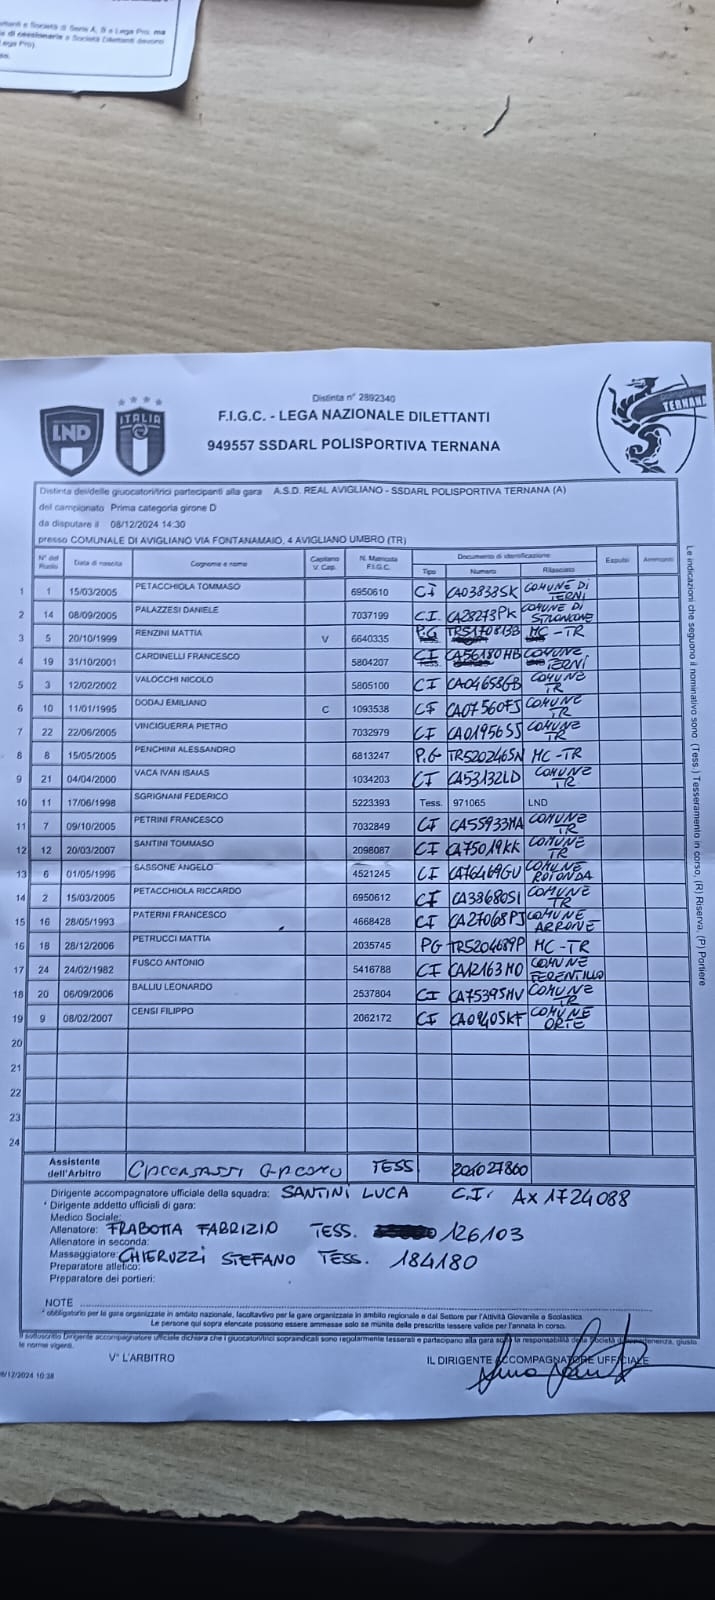 ttanti e Società di Serie A, B e Lega Pro, ma
di cessionaria a Società Dilettanti devono
ega Pro).
LND
ITALIA
TERNANA
Distinta n° 2892340
F.I.G.C. - LEGA NAZIONALE DILETTANTI
949557 SSDARL POLISPORTIVA TERNANA
Distinta dei/delle giuocatori/trici partecipanti alla gara A.S.D. REAL AVIGLIANO - SSDARL POLISPORTIVA TERNANA (A)
del campionato Prima categoria girone D
da disputare il 08/12/2024 14:30
presso COMUNALE DI AVIGLIANO VIA FONTANAMAIO, 4 AVIGLIANO UMBRO (TR)
N° del Ruolo Data di nascita Cognome e nome Capitano V. Cap. N. Matricola F.I.G.C. Documento di identificazione Espulsi Ammoniti
Tipo Numero Rilasciato
1 1 15/03/2005 PETACCHIOLA TOMMASO 6950610 CI CA03833SK COMUNE DI TERNI
2 14 08/09/2005 PALAZZESI DANIELE 7037199 C.I. CA28273PK COMUNE DI STRONCONE
3 5 20/10/1999 RENZINI MATTIA V 6640335 P.G TR5170813B MC-TR
4 19 31/10/2001 CARDINELLI FRANCESCO 5804207 CI CA56180HB COMUNE TERNI
5 3 12/02/2002 VALOCCHI NICOLO 5805100 CI CA04658GB COMUNE TR
6 10 11/01/1995 DODAJ EMILIANO C 1093538 CI CA07560FJ COMUNE TR
7 22 22/06/2005 VINCIGUERRA PIETRO 7032979 CI CA01956SS COMUNE TR
8 8 15/05/2005 PENCHINI ALESSANDRO 6813247 P.G TR5202465N MC-TR
9 21 04/04/2000 VACA IVAN ISAIAS 1034203 CI CA53132LD COMUNE TR
10 11 17/06/1998 SGRIGNANI FEDERICO 5223393 Tess. 971065 LND
11 7 09/10/2005 PETRINI FRANCESCO 7032849 CI CA55933MA COMUNE TR
12 12 20/03/2007 SANTINI TOMMASO 2098087 CI CA75019KK COMUNE TR
13 6 01/05/1996 SASSONE ANGELO 4521245 CI CA76469GU COMUNE ROTONDA
14 2 15/03/2005 PETACCHIOLA RICCARDO 6950612 CI CA38680SI COMUNE TR
15 16 28/05/1993 PATERNI FRANCESCO 4668428 CI CA27068PJ COMUNE ARRONE
16 18 28/12/2006 PETRUCCI MATTIA 2035745 PG TR5204689P MC-TR
17 24 24/02/1982 FUSCO ANTONIO 5416788 CI CA12163MO COMUNE FERENTILLO
18 20 06/09/2006 BALLIU LEONARDO 2537804 CI CA75395MV COMUNE TR
19 9 08/02/2007 CENSI FILIPPO 2062172 CI CA09405KF COMUNE ORTE
20
21
22
23
24
Assistente dell'Arbitro TESS 201027860
Dirigente accompagnatore ufficiale della squadra: SANTINI LUCA C.I. AX 1724088
* Dirigente addetto ufficiali di gara:
Medico Sociale:
Allenatore: FRABOTTA FABRIZIO TESS. 126103
Allenatore in seconda:
Massaggiatore: CHIERUZZI STEFANO TESS. 184180
Preparatore atletico:
Preparatore dei portieri:
NOTE
* obbligatorio per le gare organizzate in ambito nazionale, facoltativo per le gare organizzate in ambito regionale e dal Settore per l'Attività Giovanile e Scolastica
Le persone qui sopra elencate possono essere ammesse solo se munite della prescritte tessere valide per l'annata in corso.
Il sottoscritto Dirigente accompagnatore ufficiale dichiara che i giuocatori/trici sopraindicati sono regolarmente tesserati e partecipano alla gara sotto la responsabilità della Società di appartenenza, giusto le norme vigenti.
V° L'ARBITRO
IL DIRIGENTE ACCOMPAGNATORE UFFICIALE
8/12/2024 10:38
Le indicazioni che seguono il nominativo sono: (Tess.) Tesseramento in corso, (R) Riserva, (P) Portiere